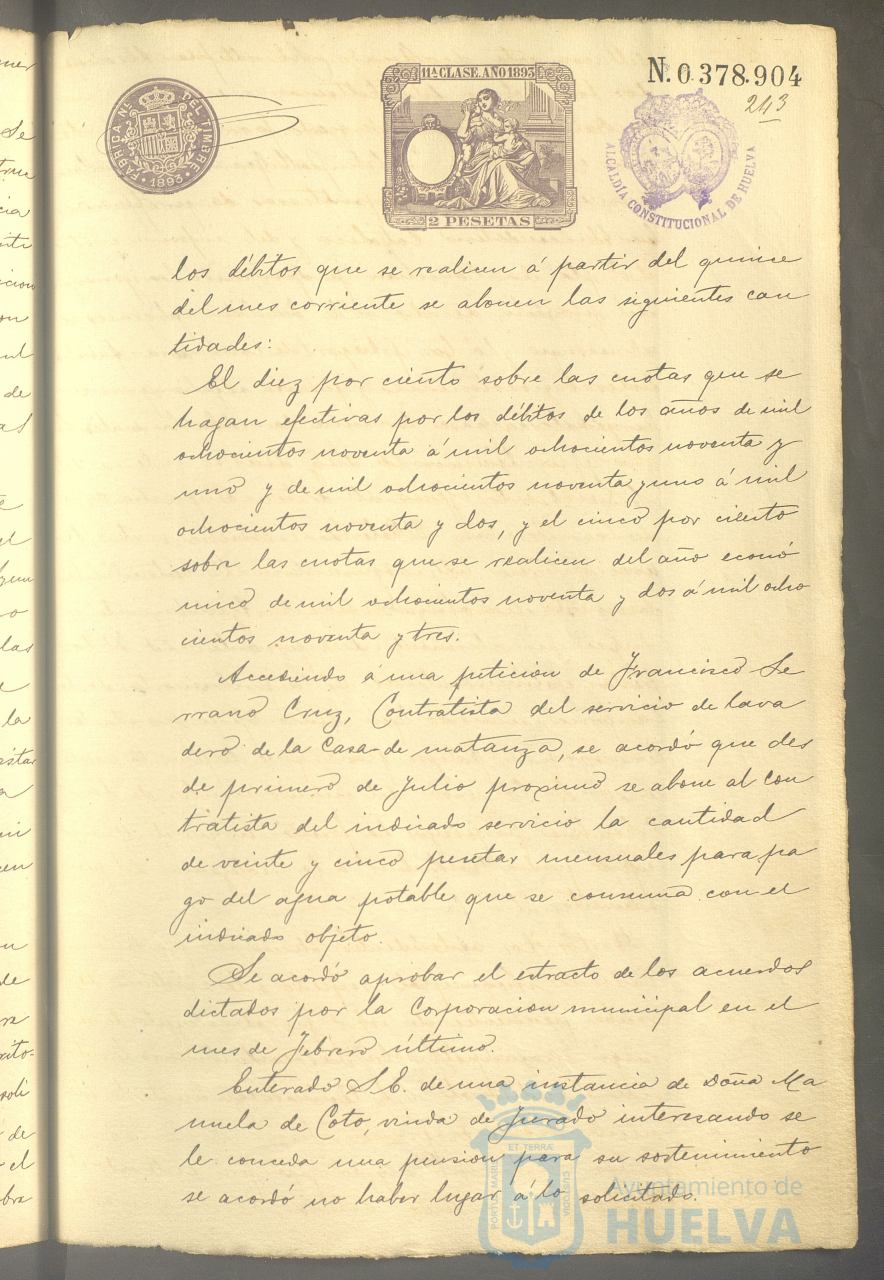 11ª CLASE. AÑO 1893
N. 0.378.904
243
FABRICA Nˡ DEL TIMBRE
· 1893 ·
2 PESETAS
ALCALDÍA CONSTITUCIONAL DE HUELVA
los débitos que se realicen á partir del quince
del mes corriente se abonen las siguientes can
tidades:
El diez por ciento sobre las cuotas que se
hagan efectivas por los débitos de los años de mil
ochocientos noventa á mil ochocientos noventa y
uno y de mil ochocientos noventa y uno á mil
ochocientos noventa y dos, y el cinco por ciento
sobre las cuotas que se realicen del año econó
mico de mil ochocientos noventa y dos á mil ocho
cientos noventa y tres.
Accediendo á una peticion de Francisco Se
rrano Cruz, Contratista del servicio de lava
dero de la Casa-de matanza, se acordó que des
de primero de Julio proximo se abone al con
tratista del indicado servicio la cantidad
de veinte y cinco pesetas mensuales para pa
go del agua potable que se consuma con el
indicado objeto.
Se acordó aprobar el extracto de los acuerdos
dictados por la Corporacion municipal en el
mes de Febrero último.
Enterado S.E. de una instancia de Doña Ma
nuela de Coto, viuda de Jurado interesando se
le conceda una pension para su sostenimiento
se acordó no haber lugar á lo solicitado.
Ayuntamiento de
HUELVA